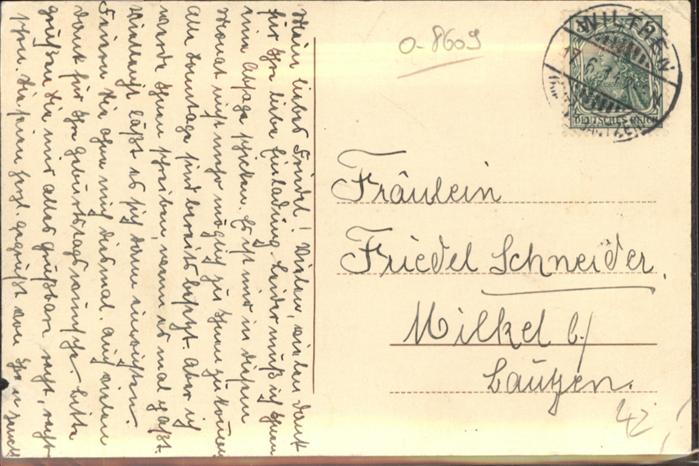 Mein liebes Friedel! Vielen, vielen Dank
für Ihre liebe Einladung. Leider muß ich Ihnen
eine Absage schicken. Es ist mir in diesem
Monat nicht mehr möglich zu Ihnen zu kommen
alle Sonntage sind bereits besetzt. Aber ich
werde Ihnen schreiben, wenn es mal paßt.
Vielleicht läßt es sich dann einrichten.
Feiern Sie ohne mich diesmal. Auch vielen
Dank für Ihre Geburtstagswünsche. Bitte
grüßen Sie mir alles Grüßbare recht, recht
schön. Sie seien herzl. gegrüßt von Ihrer
0-8609
WILTHEN
DEUTSCHES REICH
Fräulein
Friedel Schneider.
Milkel b/
Bautzen.
42